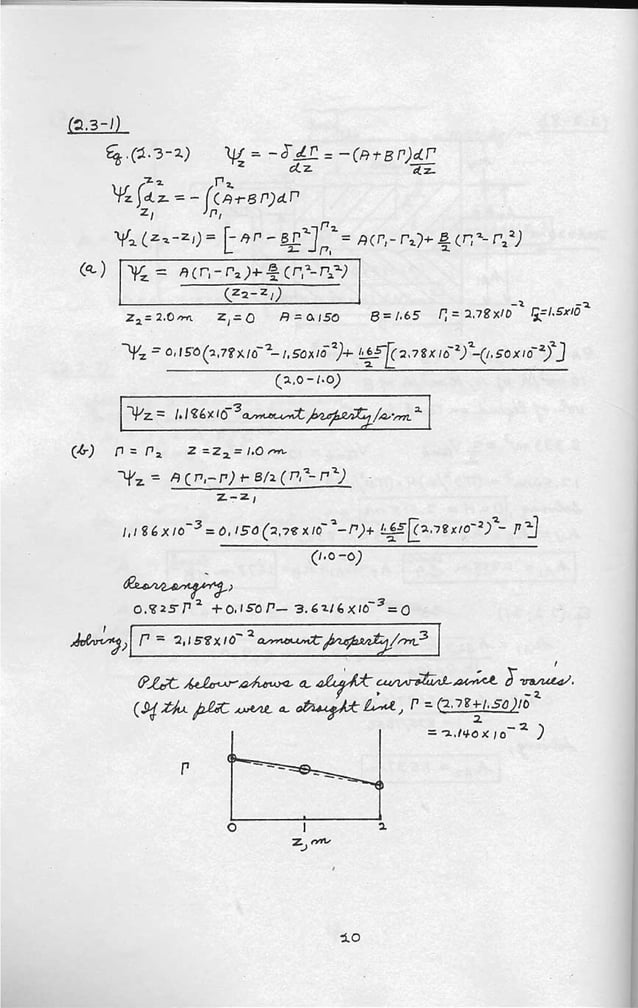 (2.3-1)
Eq.(2.3-2) Ψz = -δ dΓ/dz = -(A+BΓ)dΓ/dz
Ψz ∫z1^z2 dz = -∫Γ1^Γ2 (A+BΓ)dΓ
Ψz (z2-z1) = [-AΓ - BΓ²/2]Γ1^Γ2 = A(Γ1-Γ2)+ B/2 (Γ1²-Γ2²)
(a) Ψz = A(Γ1-Γ2)+ B/2 (Γ1²-Γ2²)
(z2-z1)
z2=2.0m z1=0 A=0.150 B=1.65 Γ1=2.78x10⁻² Γ2=1.5x10⁻²
Ψz = 0.150(2.78x10⁻²-1.50x10⁻²)+ 1.65/2 [(2.78x10⁻²)²-(1.50x10⁻²)²]
(2.0-1.0)
Ψz = 1.186x10⁻³ amount property/s·m²
(b) Γ = Γ2 z = z2 = 1.0 m
Ψz = A(Γ1-Γ)+B/2(Γ1²-Γ²)
z-z1
1.186x10⁻³ = 0.150(2.78x10⁻²-Γ)+ 1.65/2 [(2.78x10⁻²)²-Γ²]
(1.0-0)
Rearranging,
0.825Γ² +0.150Γ- 3.6216x10⁻³=0
Solving, Γ = 2.158x10⁻² amount property/m³
Plot below shows a slight curvature since δ varies.
(If the plot were a straight line, Γ = (2.78+1.50)10⁻²/2
= 2.140x10⁻² )
Γ
0 1 2
z, m
10